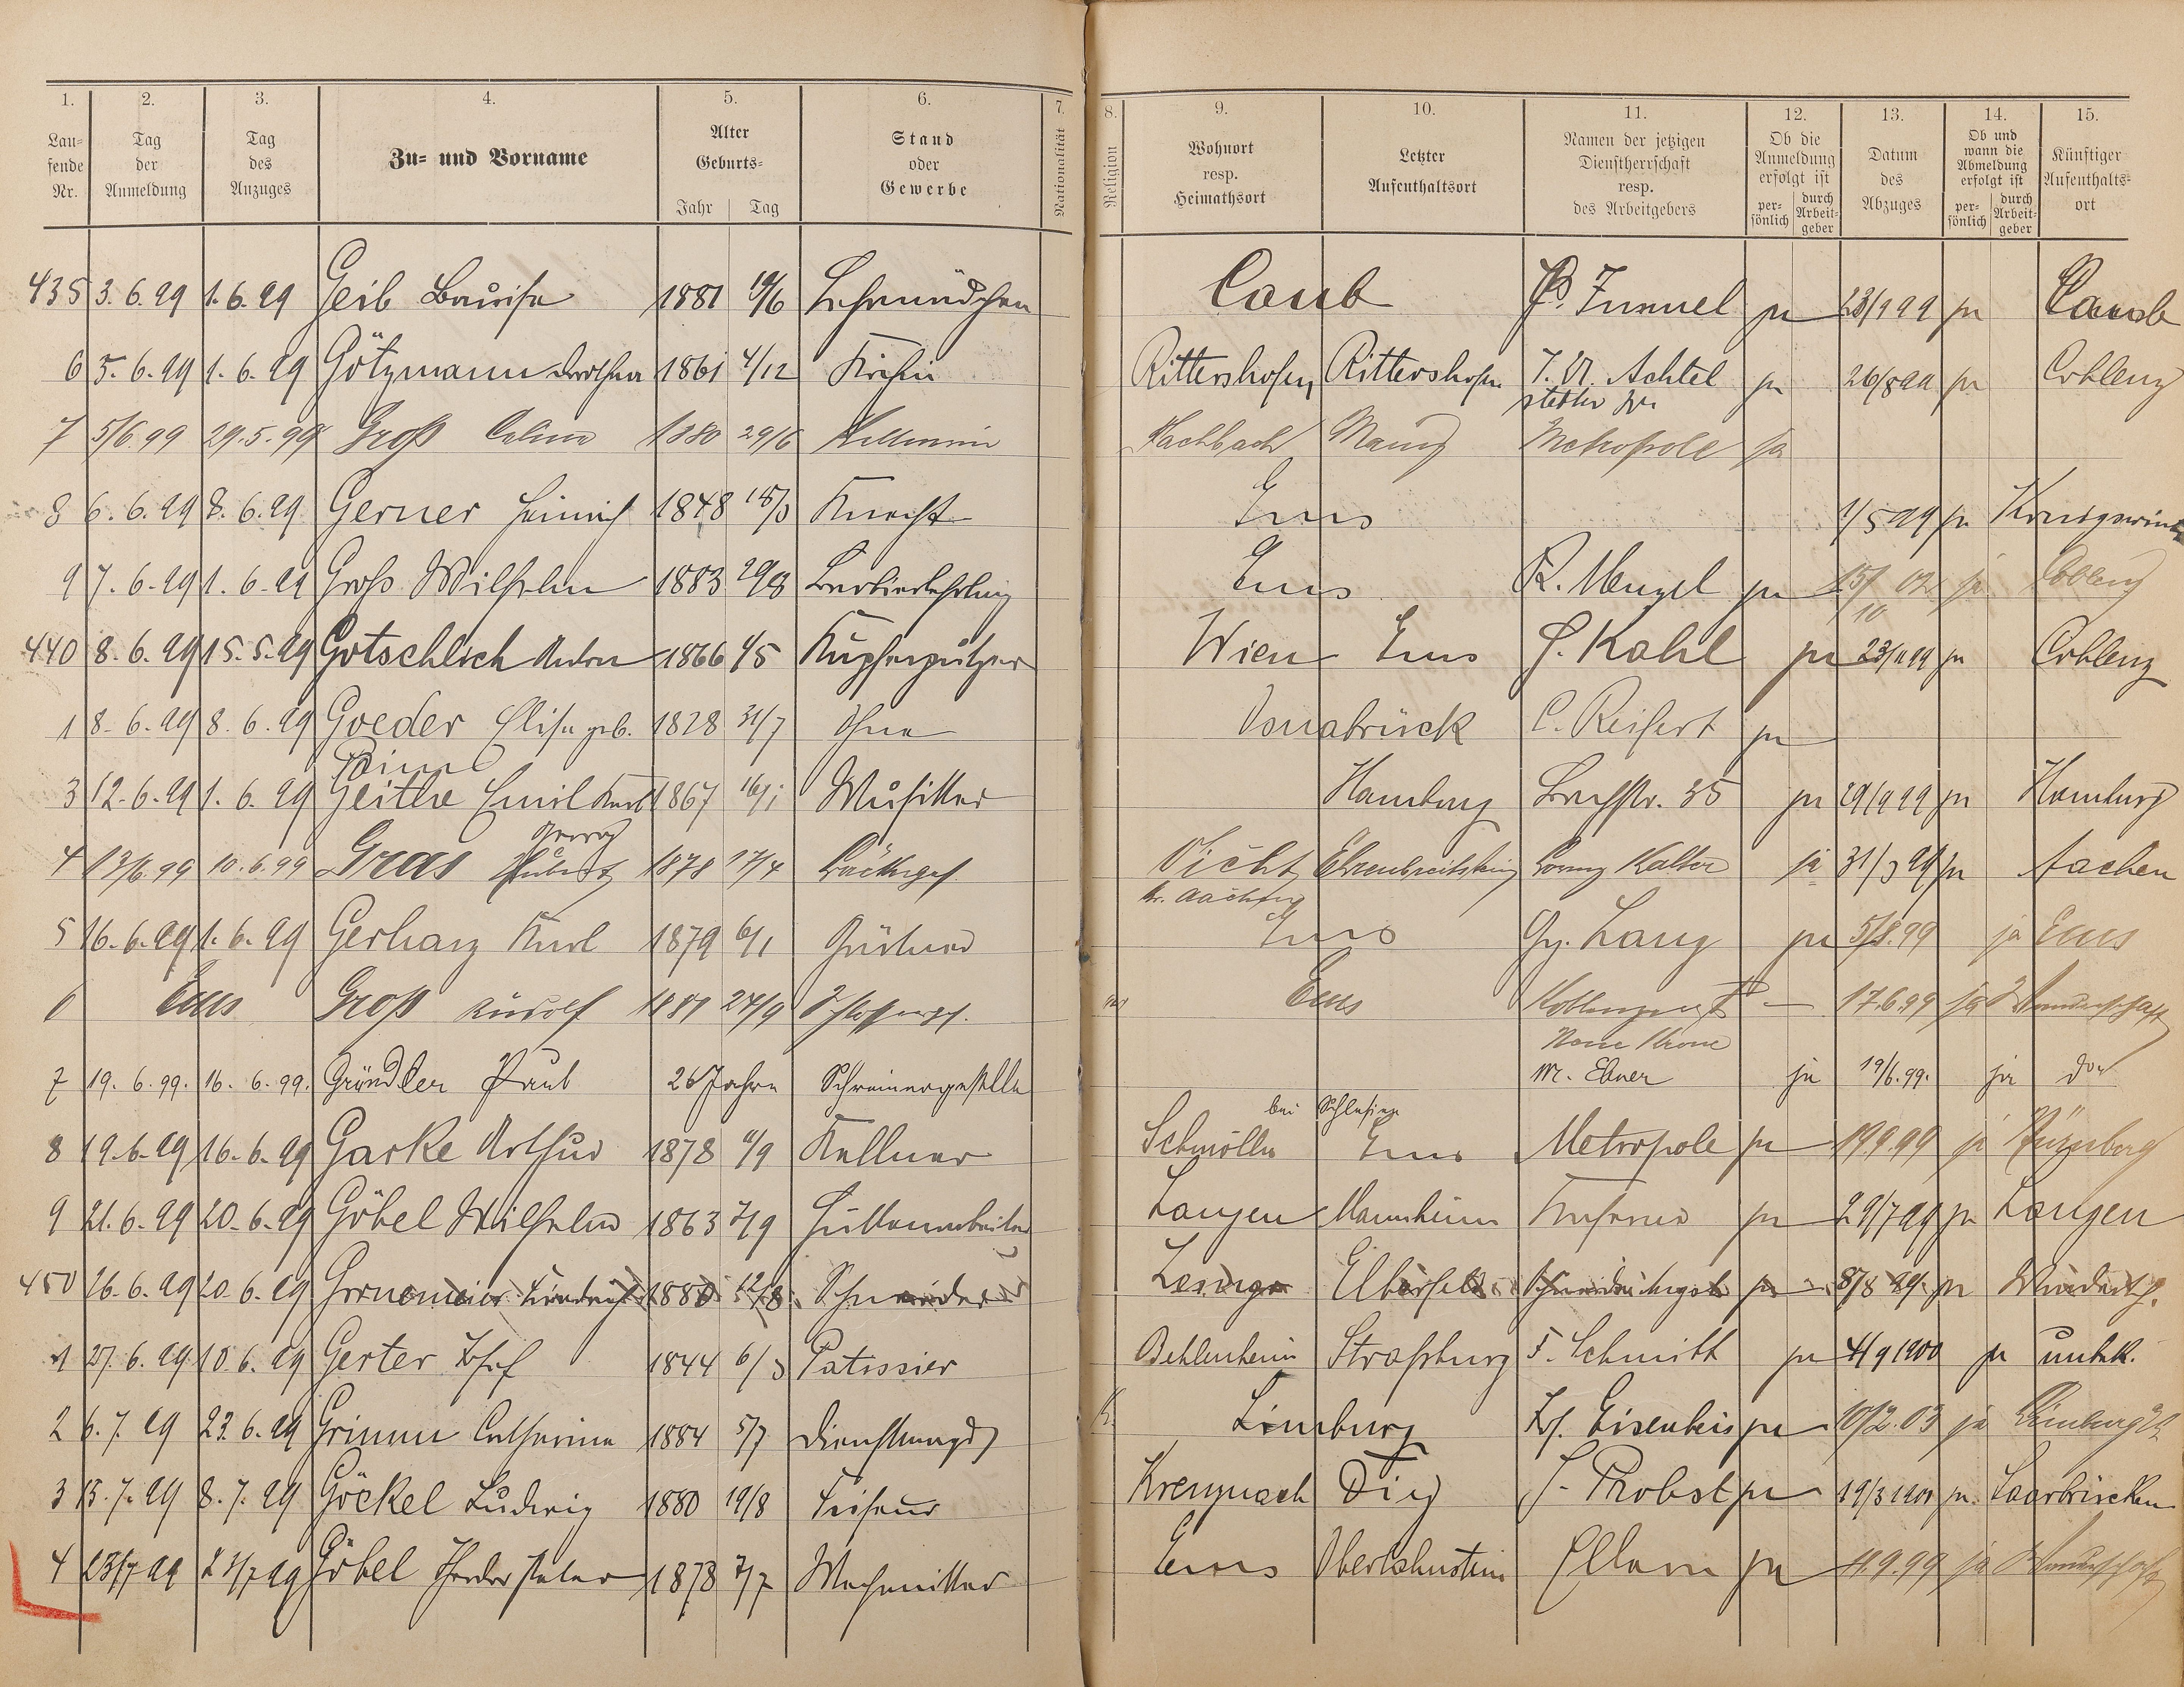 1. 2. 3. 4. 5. 6. 7. 8. 9. 10. 11. 12. 13. 14. 15.
Lau-
fende
Nr.
Tag
der
Anmeldung
Tag
des
Anzuges
Zu- und Vorname
Alter
Geburts-
Jahr Tag
Stand
oder
Gewerbe
Nationalität
Religion
Wohnort
resp.
Heimathsort
Letzter
Aufenthaltsort
Namen der jetzigen
Dienstherrschaft
resp.
des Arbeitgebers
Ob die
Anmeldung
erfolgt ist
per-
sönlich
durch
Arbeit-
geber
Datum
des
Abzuges
Ob und
wann die
Abmeldung
erfolgt ist
per-
sönlich
durch
Arbeit-
geber
Künftiger
Aufenthalts-
ort
435 3.6.99 1.6.99 Geib Louise 1881 19/6 Lehrmädchen Caub ja 23/9 99 ja Caub
6 5.6.99 1.6.99 Götzmann Dorothea 1861 4/12 Köchin Rittershofen Rittershofen Achtel ja 26/8 99 ja Coblenz
stetter
7 5/6.99 29.5.99 Groß 1880 29/6 Kellnerin Hachbach Mainz Metropole ja
8 6.6.99 8.6.99 Gerner Heinrich 1848 18/3 Knecht Ems 1/5 99 ja Königswint
9 7.6.99 1.6.99 Groß Wilhelm 1883 29/8 Barbierlehrling Ems R. Menzel ja 15/10 02 ja Coblenz
440 8.6.99 15.5.99 Gotschlich Anton 1866 1/5 Kupferputzer Wien Ems J. Kahl ja 23/11 99 ja Coblenz
1 8.6.99 8.6.99 Goeder Elise geb. 1828 31/7 Ohne Osnabrück C. Reifert ja
3 12.6.99 1.6.99 Geithe Emil Karl 1867 16/1 Musiker Hamburg Bachstr. 35 ja 29/9 99 ja Hamburg
Georg
4 13/6.99 10.6.99 Gras Hubert 1878 17/4 Bäckergef. Vicht Ehrenbreitstein Kalter ja 31/3 99 ja Aachen
Kr. Aachen
5 16.6.99 1.6.99 Gerharz Karl 1879 6/1 Gärtner Ems Gg. Lang ja 5/8.99 ja Ems
6 Ems Groß Rudolf 1881 24/9 Schlosserges. Ems 17.6.99 ja Wanderschaft
Neue Krone
7 19.6.99. 16.6.99. Gründler Paul 26 Jahre Schreinergeselle M. Ebner ja 19/6.99. ja
bei Schlesien
8 19.6.99 16.6.99 Garke Arthur 1878 11/9 Kellner Schmölln Ems Metropole ja 19.9.99 ja Nürnberg
9 21.6.99 20.6.99 Göbel Wilhelm 1863 7/9 Hüttenarbeiter Langen Mannheim ja 29/7 99 ja Langen
450 26.6.99 20.6.99 Friedrich 1880 12/8 Schneider Elberfeld ja 8/8 99 ja
1 27.6.99 10.6.99 Gerter Josef 1844 6/3 Patissier Behlenheim Straßburg F. Schmitt ja 4/9 1900 ja unbek.
2 6.7.99 23.6.99 Grimm Catharina 1884 5/7 Dienstmagd Limburg Jos. Eisenbeis ja 10/2.03 ja Limburg
3 13.7.99 8.7.99 Göckel Ludwig 1880 19/8 Friseur Kreuznach Diez J. Probst ja 19/3 1900 ja. Saarbrücken
4 23/7 99 23/7 99 Göbel Peter 1873 7/7 Ems Oberlahnstein ja 11.9.99 ja Wanderschaft